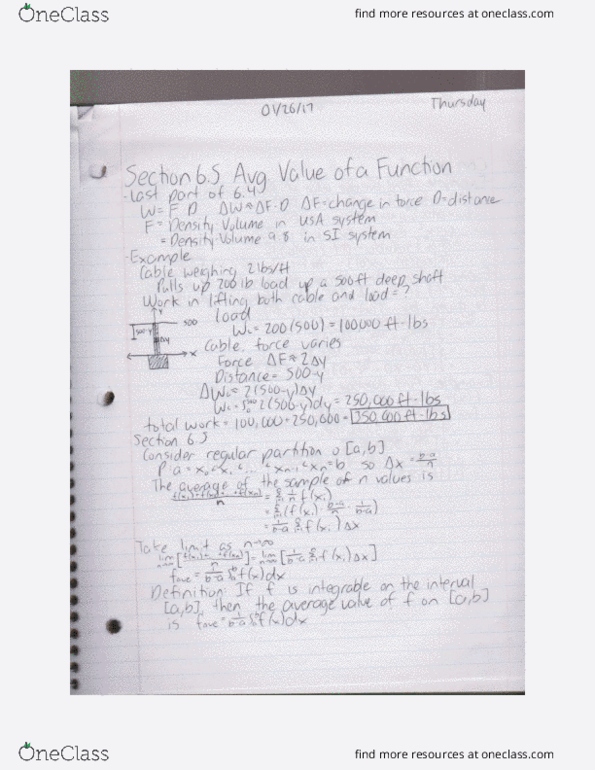 OneClass
find more resources at oneclass.com
01/26/17
Thursday
Section 6.5 Avg Value of a Function
-Last part of 6.4
W=F·D ΔW≈ΔF·D ΔF=change in force D=distance
F=Density·Volume in USA system
=Density·Volume·9.8 in SI system
-Example
Cable weighing 2lbs/ft
Pulls up 200 lb load up a 500ft deep shaft
Work in lifting both cable and load=?
Load
500
W=200(500)=100000 ft·lbs
500-y
Δy
x
y
Cable: force varies
Force ΔF≈2Δy
Distance=500-y
ΔW=2(500-y)Δy
W=∫2(500-y)dy=250,000 ft·lbs
total work=100,000+250,000=350,000 ft·lbs
Section 6.5
Consider regular partition of [a,b]
P: a=x₀<x₁<...<xₙ₋₁<xₙ=b, so Δx=(b-a)/n
The average of the sample of n values is
(f(x₁)+f(x₂)+...+f(xₙ))/n=Σ 1/n f(xᵢ)
=Σ(f(xᵢ)·(b-a)/n·1/(b-a))
=1/(b-a) Σ f(xᵢ)Δx
Take limit as n→∞
lim[(f(x₁)+...+f(xₙ))/n]=lim[1/(b-a) Σ f(xᵢ)Δx]
fave=1/(b-a)∫f(x)dx
Definition: If f is integrable on the interval
[a,b], then the average value of f on [a,b]
is fave=1/(b-a)∫f(x)dx
OneClass
find more resources at oneclass.com